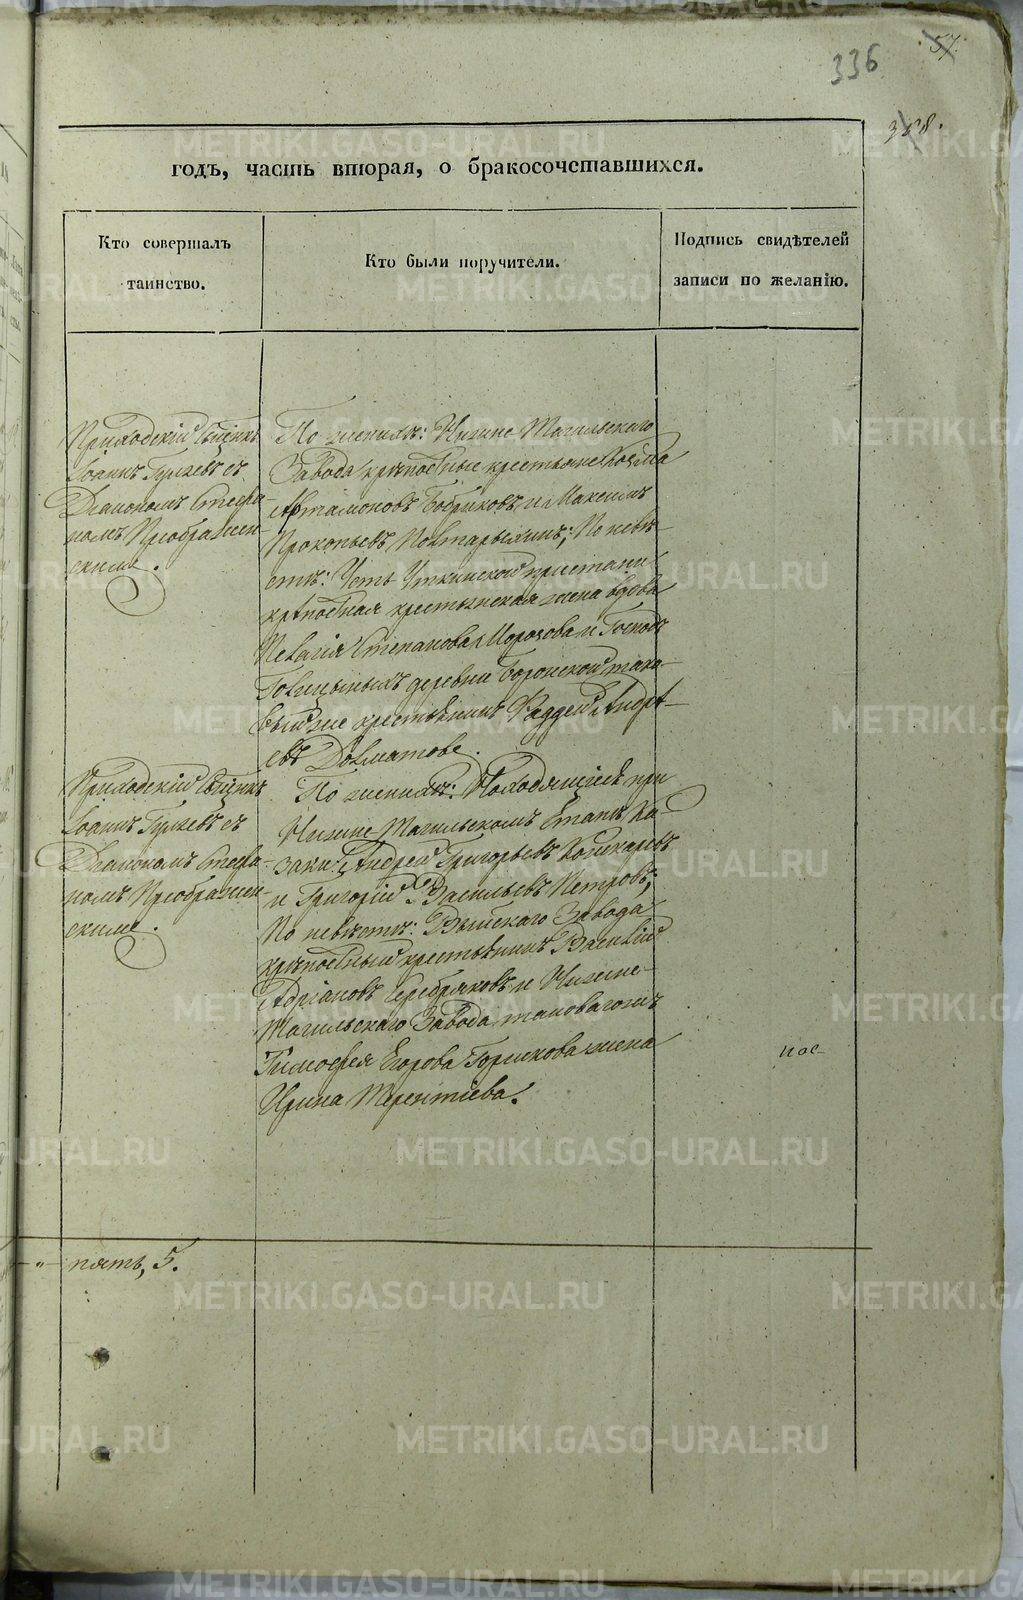 336
57.
388.
годъ, часть вторая, о бракосочетавшихся.
Кто совершалъ
таинство.
Кто были поручители.
Подпись свидѣтелей
записи по желанію.
Приходскій Свщнкъ
Іоаннъ Гуляевъ съ
Діакономъ Стефа-
номъ Преображен-
скимъ.
По женихѣ: Нижне Тагильскаго
Завода крѣпостные крестьяне Козма
Артамоновъ Бобриковъ, и Максимъ
Прокопьевъ; По невѣ-
стѣ: Усть Уткинской пристани
крѣпостная крестьянская жена вдова
Пелагія Степанова Морозова, и Господъ
Голицыныхъ деревни тако-
выйже крестьянинъ Фаддей Андрѣ-
евъ Долматовъ.
Приходскій Свщнкъ
Іоаннъ Гуляевъ съ
Діакономъ Стефа-
номъ Преображен-
скимъ.
По женихѣ: Находящіеся при
Нижне Тагильскомъ Етапѣ Ка-
заки: Андрей Григорьевъ
и Григорій Васильевъ Петровъ;
По невѣстѣ: Выйскаго Завода
крѣпостный крестьянинъ Василій
Адріановъ Серебряковъ, и Нижне-
Тагильскаго Завода таковагожъ
Тимофея Егорова Горшкова жена
Ирина Терентіева.
пос-
-"- пять, 5.
METRIKI.GASO-URAL.RU